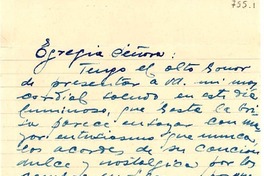 755.1
Egregia Señora:
Tengo el alto honor
de presentar a Ud. mi muy
cordial saludo en este día
luminoso, que hasta la bri
sa parece ensayar con ma
yor entusiasmo que nunca
los acordes de su canción
dulce y nostálgica por los